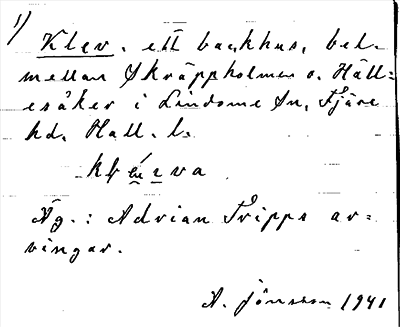 1)
Klev, ett backhus, bel-
mellan Skräppholmen o. Häll=
esåker i Lindome sn, Fjäre
hd. Hall. l.
Äg.: Adrian Fripps ar=
vingar.
A. Jönsson 1941